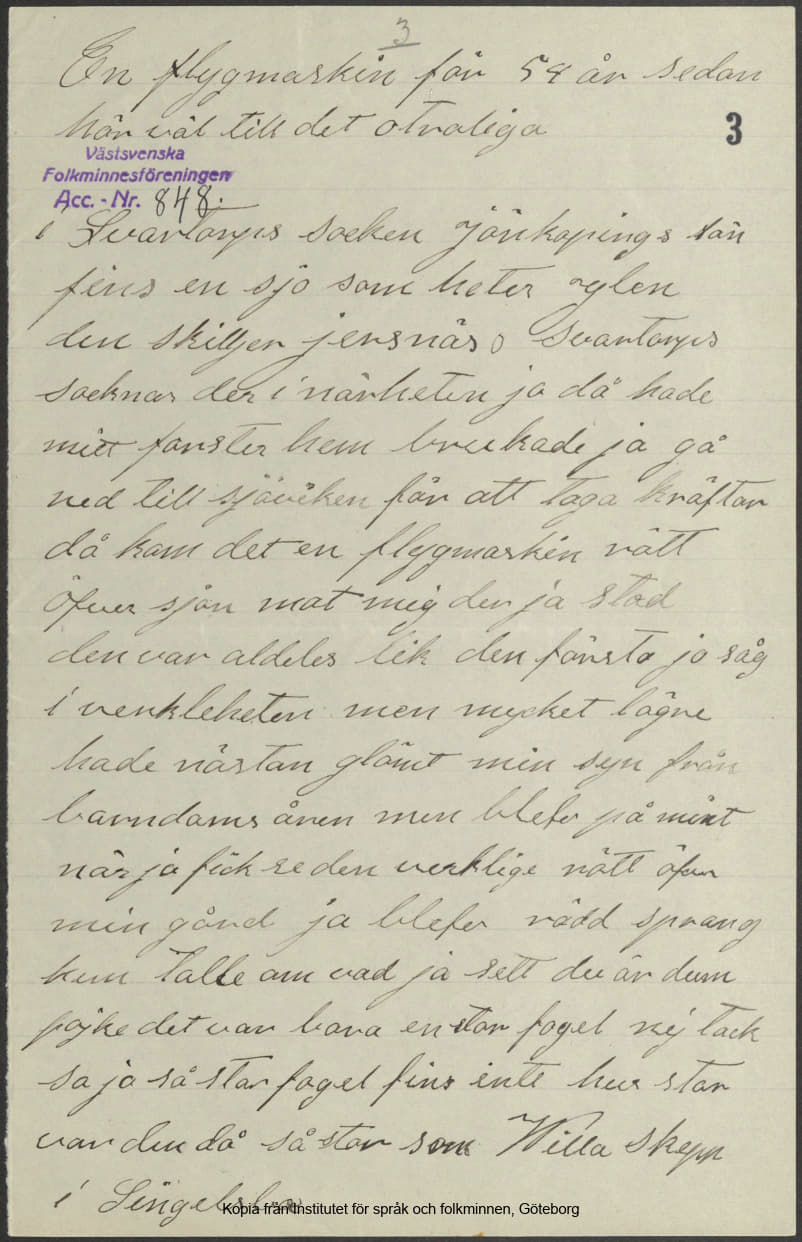 3
En flygmaskin för 58 år sedan
hör väl till det otroliga
3
Västsvenska
Folkminnesföreningen
Acc. - Nr. 848.
i Svartorps socken Jönköpings län
fins en sjö som heter ylen
den skiljer jersnäs o Svartorps
socknar der i närheten ja då hade
mitt forster hem brukade ja gå
ned till sjöviken för att taga kräftor
då kom det en flygmaskin rätt
öfver sjön mot mig der ja stod
den var aldeles lik den första jo såg
i verkleheten men mycket lägre
hade nästan glömt min syn från
barndoms åren men blefv på mint
när ja fick se den verklige rätt öfver
min gård ja blefv rädd sprang
hem talte om vad ja sett du är dum
pojke det var bara en stor fogel nej tack
sa ja så stor fogel fins inte hur stor
var den då så stor som Willa Skepp
i
Kopia från Institutet för språk och folkminnen, Göteborg